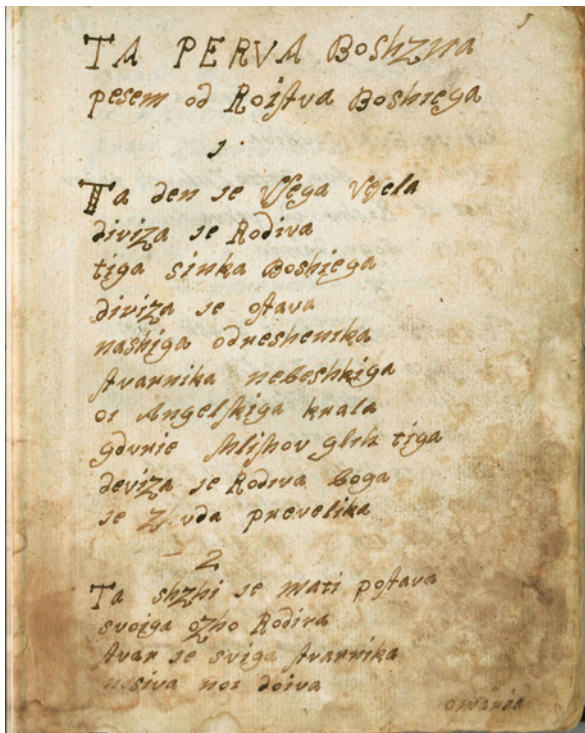 1
TA PERVA BOSHZNA
pesem od Roiſtva Boshiega
1.
Ta den je Vſega Veſela
diviza je Rodiva
tiga sinka Boshiega
diviza je oſtava
nashiga odreshenika
ſtvarnika nebeshkiga
oi Angelſkiga krala
gdurie ſhliſhov glih tiga
deviza je Rodiva boga
je prevelika
2
Ta shzhi je mati poſtava
svoiga ozho Rodiva
ſtvar je sviga ſtvarnika
nosiva noi doiva
omanda